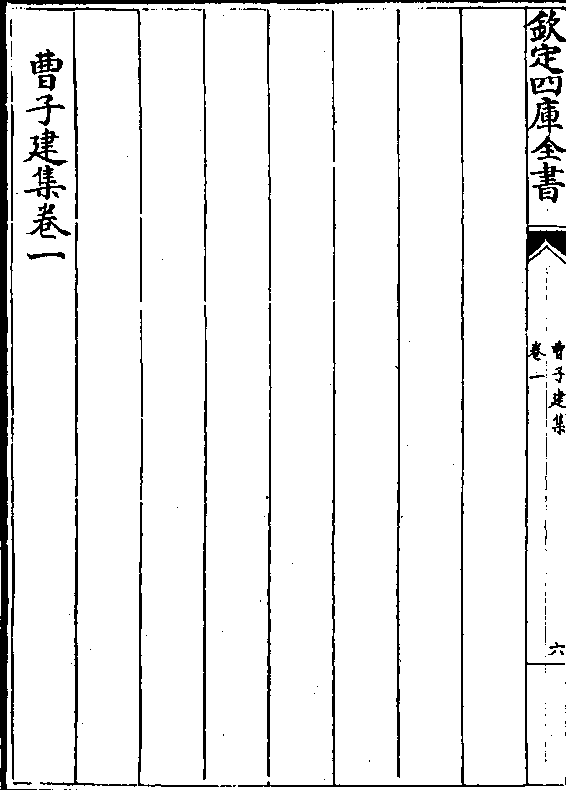 欽定四庫全書
曹子建集
卷一
六
曹子建集卷一